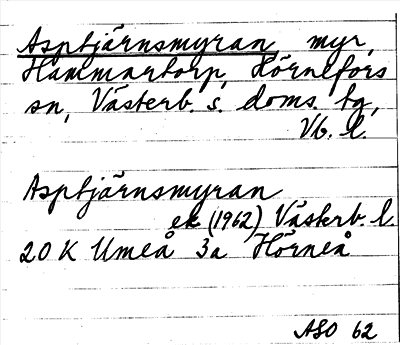 Asptjärnsmyran myr,
Hammartorp, Hörnefors
sn, Västerb. s. doms. tg,
Vb. l.
Asptjärnsmyran
ek (1962) Västerb. l.
20 K Umeå 3a Hörneå
ASO 62